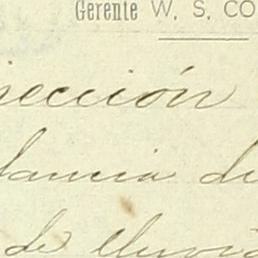 Gerente W. S. CO
ección
lancia de
de lluvia